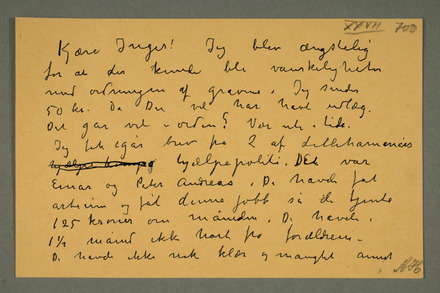 XXVII 703
Kjære Inger! Jeg blev ængstelig
for at der kunde bli vanskeligheter
med ordningen af gravene. Jeg sendte
50 kr. Da Du vel har havt utlæg.
Det går vel i orden?
Jeg fik igår brev fra 2 af Lillehammers
hjælpepoliti. Det var
Einar og Peter Andreas. De havde fåt
arbeide og fåt denne jobb så de tjente
125 kroner om måneden. De havde i
1½ måned ikke hørt fra forældrene.
De havde ikke nok klær og manglet annet